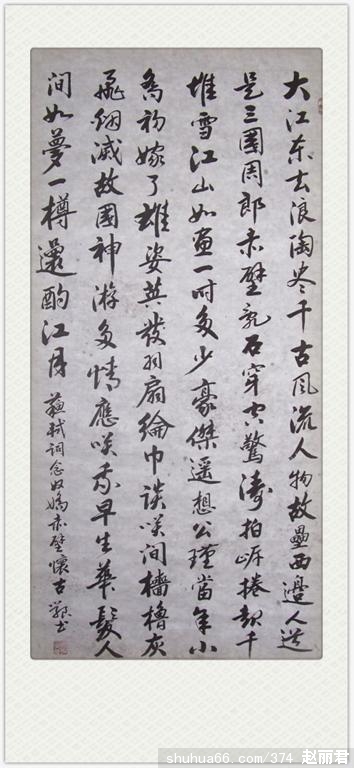 大江东去浪淘尽千古风流人物故壘西邊人道
是三國周郎赤壁乱石穿空驚濤拍岸捲起千
堆雪江山如画一时多少豪傑遥想公瑾當年小
喬初嫁了雄姿英發羽扇綸巾談咲间檣櫓灰
飛烟滅故國神游多情應咲我早生華髮人
间如夢一樽還酹江月
蘇軾词念奴嬌赤壁懷古 书
shuhua66.com/374 赵丽君